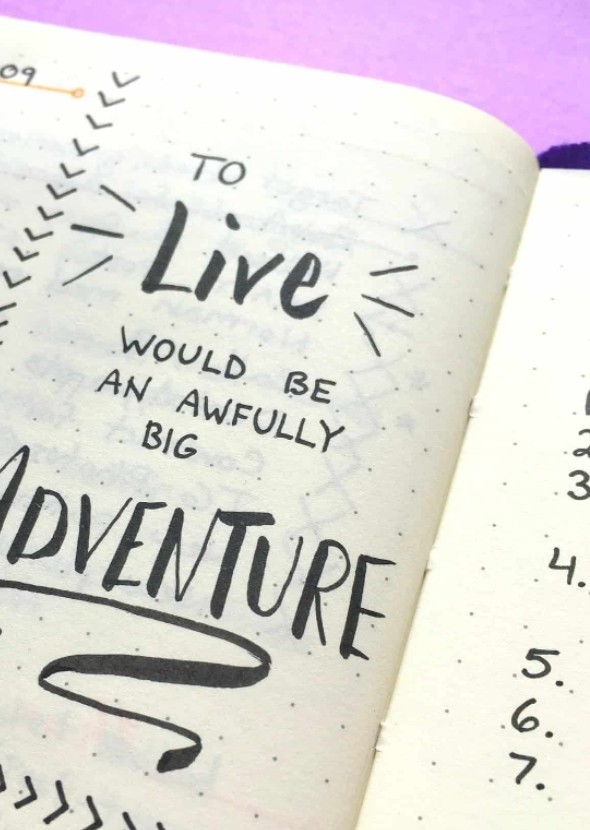 09
TO
Live
WOULD BE
AN AWFULLY
BIG
ADVENTURE
2
3
4.
5.
6.
7.